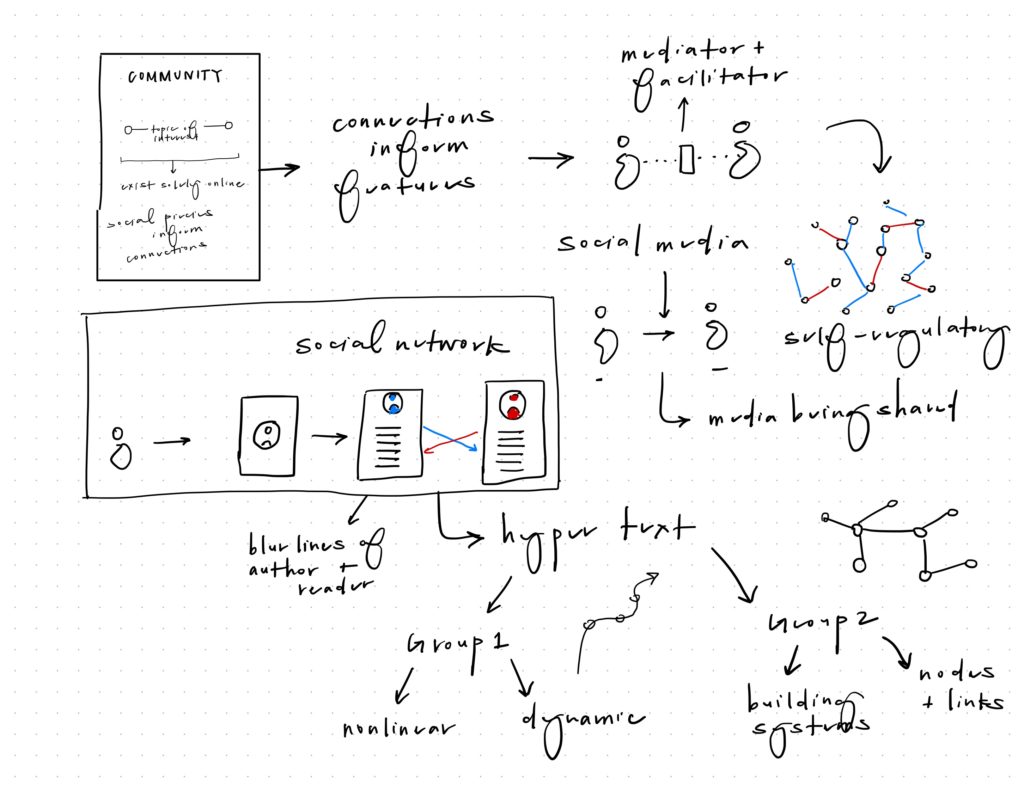 COMMUNITY
topic of
interest
exist solely online
social precious
inform
connections
connections
inform
features
mediator +
facilitator
social media
self-regulatory
media being shared
social network
blur lines of
author +
reader
hyper text
Group 1
nonlinear
dynamic
Group 2
building
systems
nodes
+ links